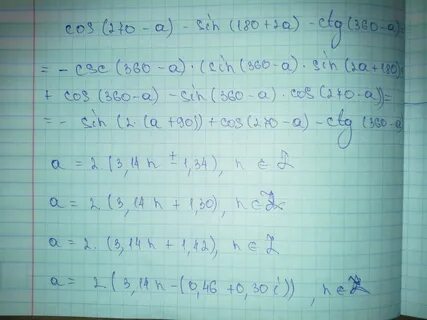 cos (270 - a) - sin (180 + 2a) - ctg (360 - a) =
= - csc (360 - a) · (sin (360 - a) · sin (2a + 180) +
+ cos (360 - a) - sin (360 - a) · cos (270 - a)) =
= - sin (2 (a + 90)) + cos (270 - a) - ctg (360 - a)
a = 2 (3,14 n ± 1,34), n ∈ Z
a = 2 (3,14 n + 1,30), n ∈ Z
a = 2 (3,14 n + 1,42), n ∈ Z
a = 2 (3,14 n - (0,46 + 0,30 i)), n ∈ Z